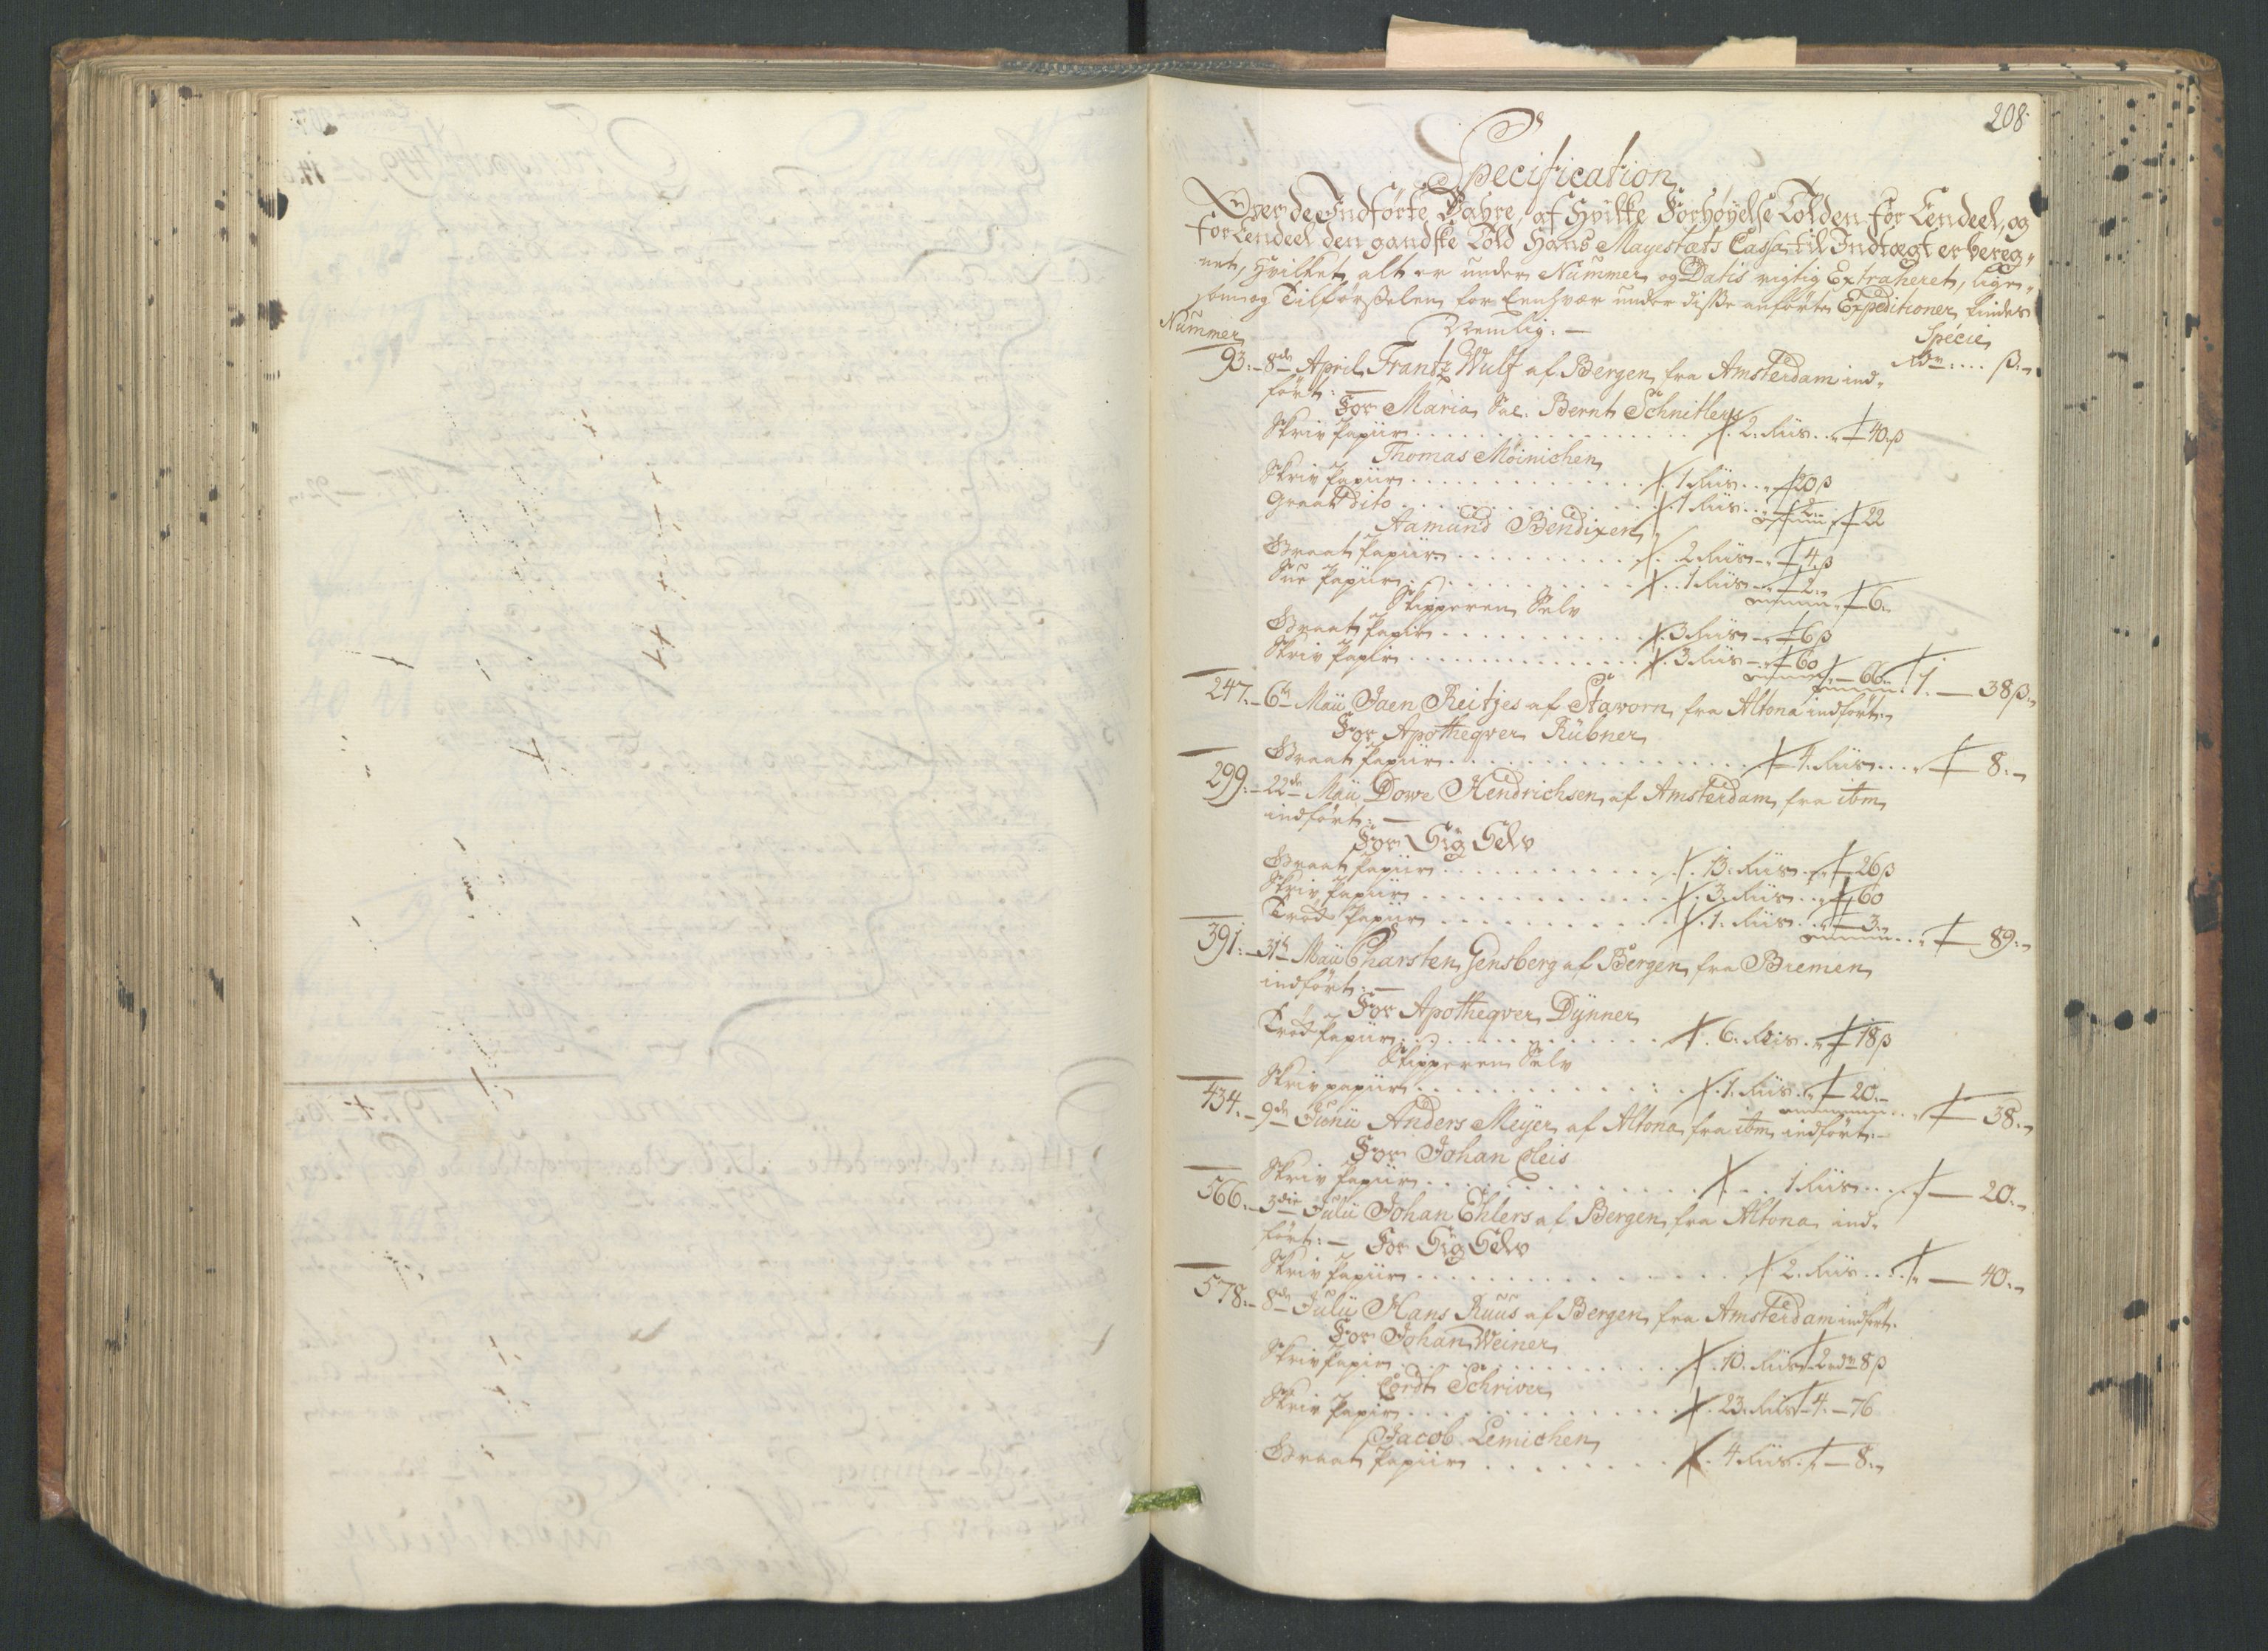 208.
Specification
Over de Indførte Vahre, af Hvilke Forhøyelse Tolden for Eendeel, og
for Eendeel den gandske Told Hans Mayestæts Cassa til Indtægt er bereg-
net, Hvilket alt er under Nummer og Datis rigtig Extraheret, lige-
som og Tilførselen for Eenhver under disse anførte Expeditioner findes
Nummer Nemlig: — Specie
Rdr .... ß.
93.- 8de April Frantz Wulf af Bergen fra Amsterdam ind-
ført: For Maria Sal. Bernt Schnitlers
Skriv Papiir . . . 2. Riis . . 40.ß
Thomas Møinichen
Skriv Papiir . . . 1 Riis . . 20 ß
Graat Dito . . . 1 Riis . . 2.- 22
Aamund Bendixen
Graat Papiir . . . 2 Riis - 4.ß
Papiir . . . 1 Riis - 2.- 6.-
Skipperen Selv
Graat Papir . . . 3 Riis - 6 ß
Skriv Papir . . . 3 Riis - 60 — 66 1. — 38 ß.
247.- 6te Maii Jaen Reitjes af Staworn fra Altona indført.
For Apotheqver Rübner
Graat Papiir . . . 4. Riis . . . 8.-
299.- 22de Maii Dowe Hendrichsen af Amsterdam fra ibm
indført: —
For Sig Selv
Graat Papiir . . . 13. Riis . 26 ß
Skriv Papiir . . . 3. Riis . . 60
Papiir . . . 1. Riis . . 3.- 89.-
391.- 31te Maii Charsten Gensberg af Bergen fra Bremen
indført: —
For Apotheqver Dÿnner
Papiir . . . 6. Riis . 18 ß
Skipperen Selv
Skriv papiir . . . 1. Riis . 20.- 38.-
434.- 9de Junii Anders Meyer af Altona fra ibm indført.-
For Johan Cleis
Skriv Papiir . . . 1 Riis . . . 20.-
566.- 3die Julii Johan Ehlers af Bergen fra Altona ind-
ført: — For Sig Selv
Skriv Papiir . . . 2. Riis . . . — 40.-
578.- 8de Julii Hans Ruus af Bergen fra Amsterdam indført.
For Johan Weiner
Skriv Papir . . . 10. Riis 2 rdr 8 ß
Cordt Schriver
Skriv Papir . . . 23. Riis - 4. - 76
Jacob Lemichen
Graat Papiir . . . 4 Riis . — 8.-